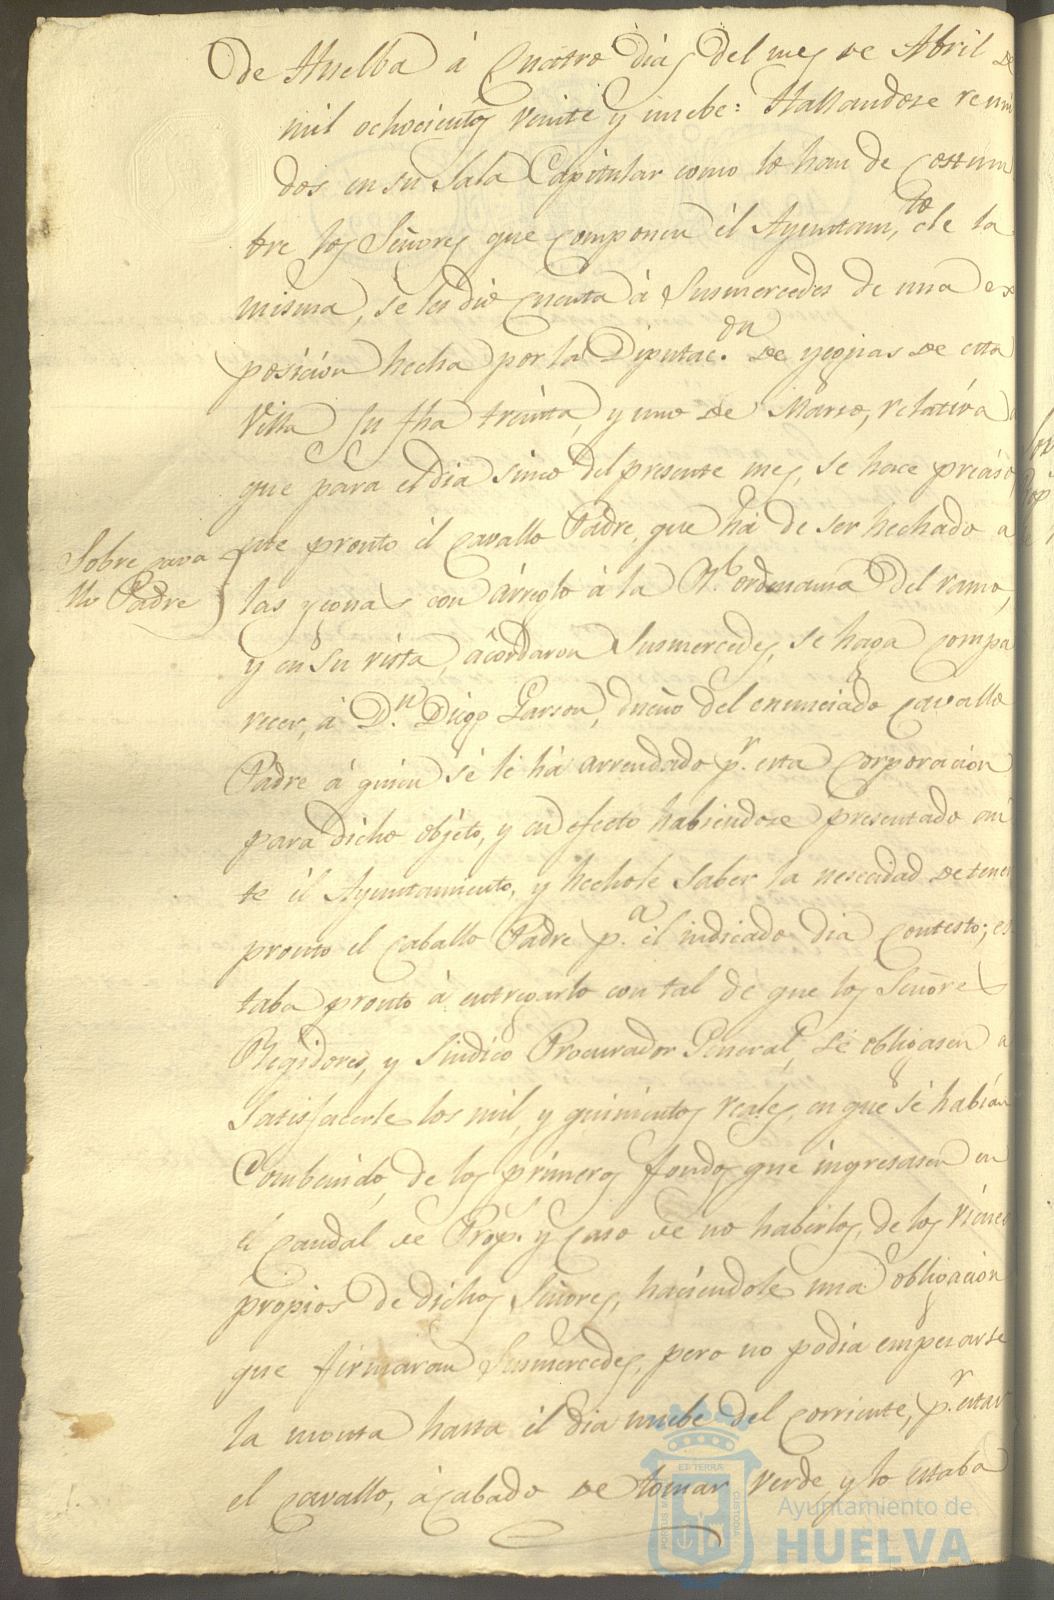 de Huelba á Cuatro dias del mes de Abril de
mil ochocientos veinte y nuebe: Hallandose reuni
dos en su Sala Capitular como lo han de costum
bre los Señores que componen él Ayuntam.to de la
misma, se les dio cuenta á Susmercedes de una ex
posicion hecha por la Diputac.on de yeguas de esta
Villa su fha treinta, y uno de Marso, relativa a
que para el dia sinco del presente mes, se hace preciso
Sobre cava
llo Padre
este pronto él cavallo Padre, que há de ser hechado a
las yeguas con arreglo á la R.l ordenansa del ramo,
y en su vista, acordaron Susmercedes, se haga compa
recer, á D.n Diego Garson, dueño del enunciado cavallo
Padre á quien se le há arrendado p.r esta corporacion
para dicho objeto, y en efecto habiendose presentado an
te él Ayuntamiento, y hechole saber la nesecidad de tener
pronto el caballo Padre p.a él indicado dia contesto; es
taba pronto á entregarlo con tal de que los Señores
Regidores, y Sindico Procurador General, se obligasen a
Satisfacerle los mil, y quinientos reales, en que se habian
Combenido, de los primeros fondos que ingresasen en
él caudal de Prop.s y caso de no haberlos, de los vienes
propios de dichos Señores, haciendole una obligacion
que firmaran Susmercedes, pero no podia empesarse
la monta hasta él dia nuebe del corriente, p.r estar
el cavallo, acabado de tomar verde, y lo estaba
PORTUS MARIS
ET TERRÆ
CUSTODIA
Ayuntamiento de
HUELVA